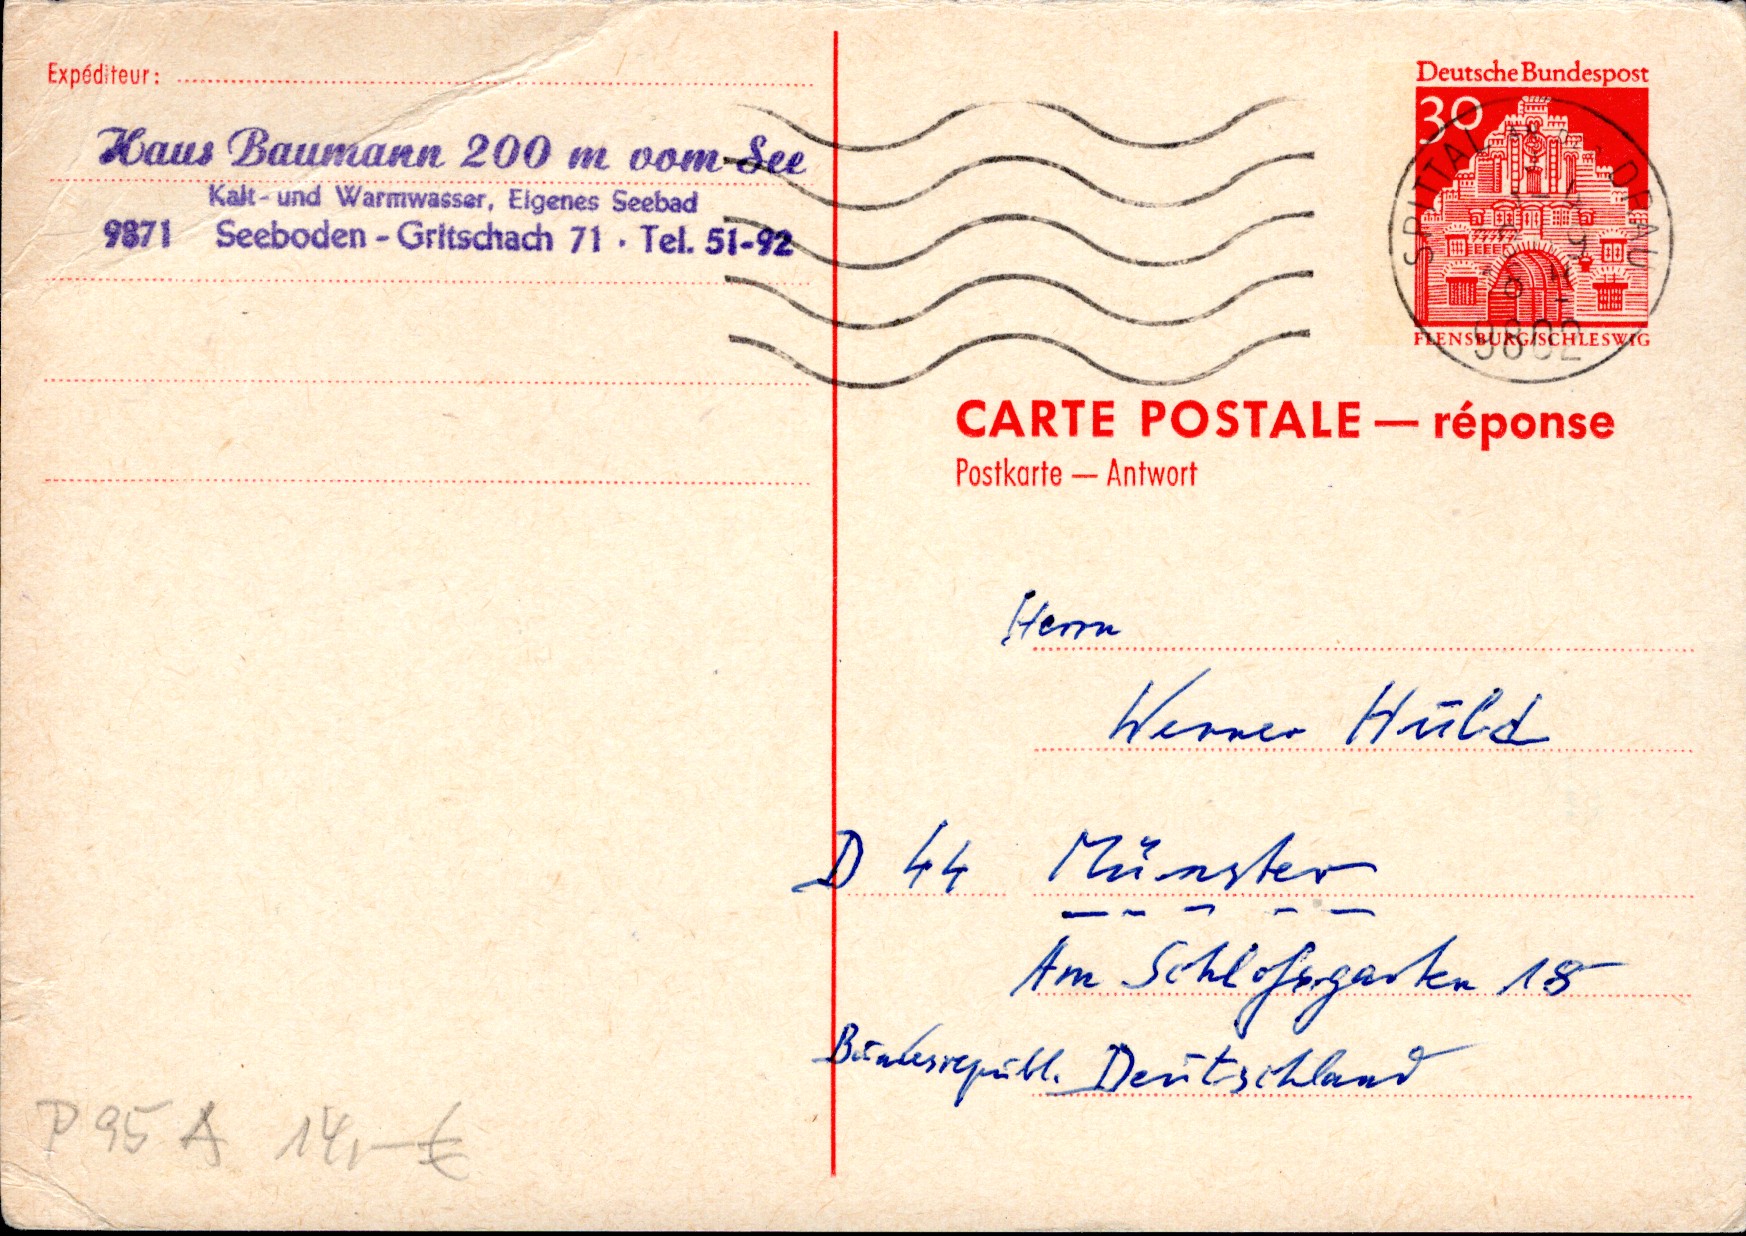 Expéditeur:
Haus Baumann 200 m vom See
Kalt- und Warmwasser, Eigenes Seebad
9871 Seeboden - Gritschach 71 · Tel. 51-92
Deutsche Bundespost
30
SPITTAL AN DER DRAU
9802
FLENSBURG/SCHLESWIG
CARTE POSTALE — réponse
Postkarte — Antwort
Herrn
Werner Hüld
D 44 Münster
Am Schloßgarten 18
Bundesrepubl. Deutschland
P 95 A 14,— €